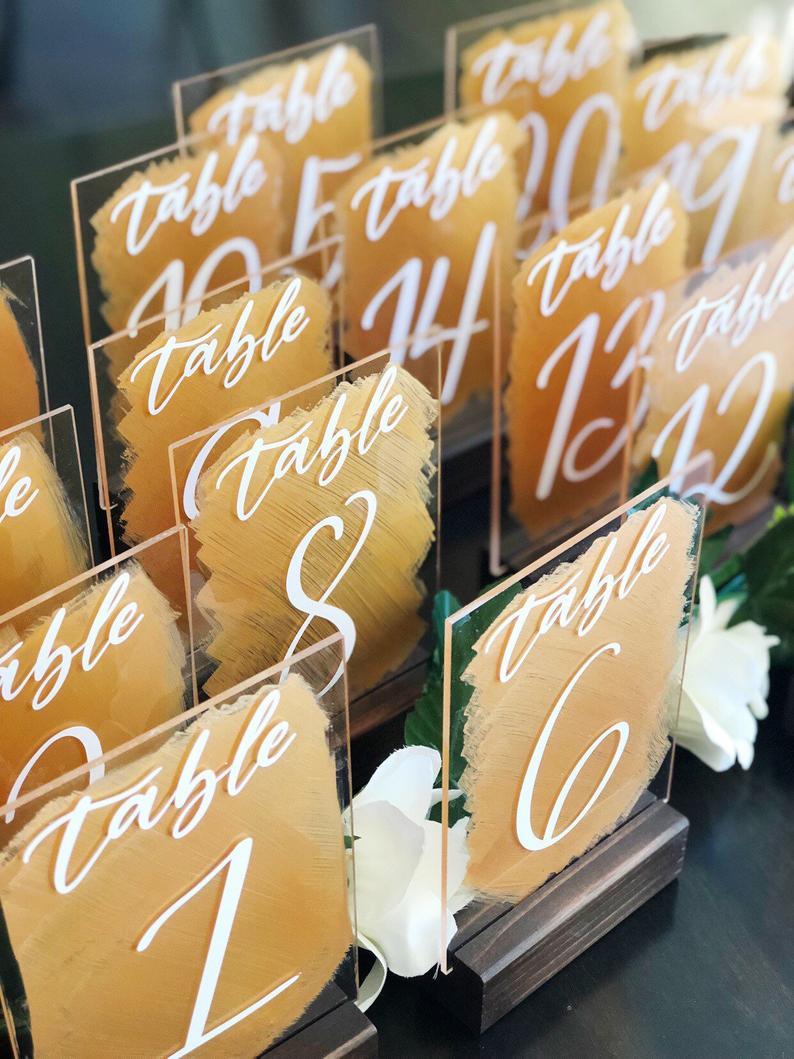 table
5
table
20
table
19
table
10
table
14
table
13
table
12
table
table
8
table
6
table
table
1